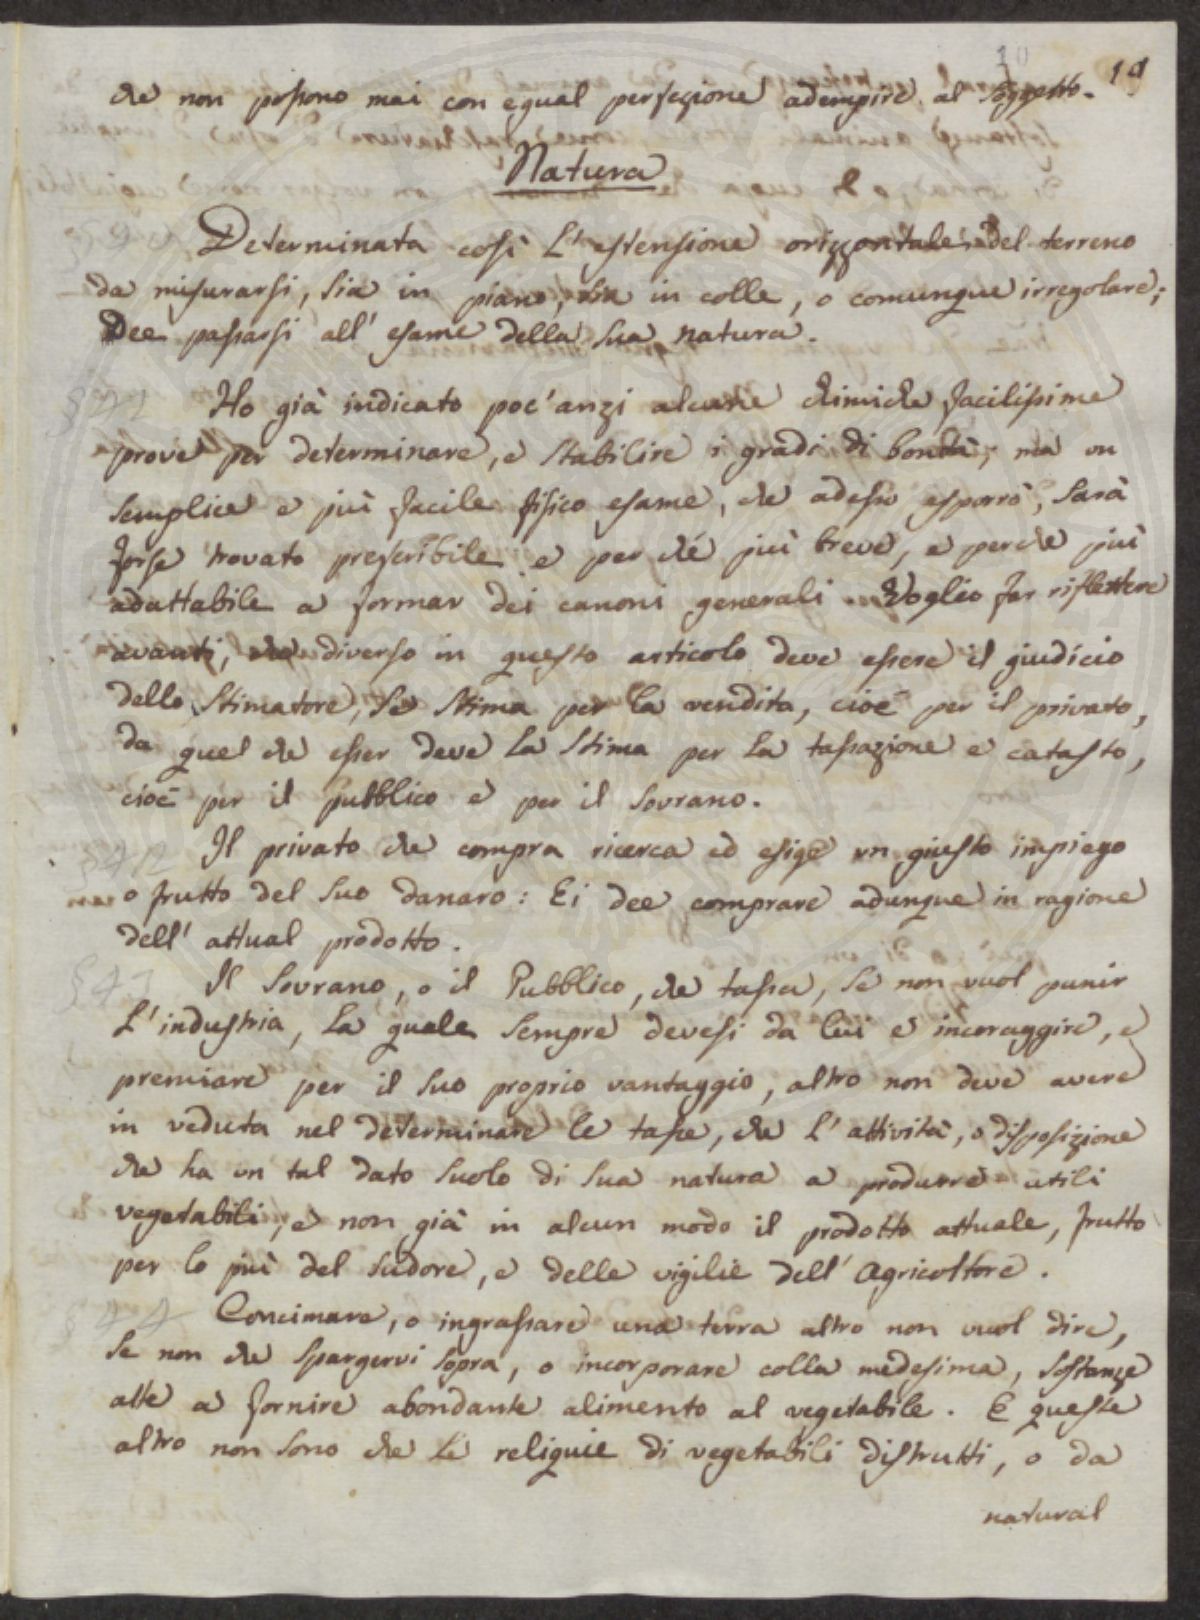 10 19
che non possono mai con egual perfezione adempire al soggetto.
Natura
Determinata così l'estensione orizzontale del terreno
da misurarsi, sia in piano, sia in colle, o comunque irregolare;
Dee passarsi all'esame della sua natura.
§41 Ho già indicato poc'anzi alcune chimiche facilissime
prove per determinare, e stabilire i gradi di bontà; ma un
semplice e più facile fisico esame, che adesso esporrò, sarà
forse trovato preferibile e per ché più breve, e perche più
adattabile a formar dei canoni generali. Voglio far riflettere
avanti, che diverso in questo articolo deve essere il giudicio
dello Stimatore, se stima per la vendita, cioè per il privato,
da quel che esser deve la stima per la tassazione e catasto,
cioè per il pubblico e per il Sovrano.
§42 Il privato che compra ricerca ed esige un giusto impiego
o frutto del suo danaro: Ei dee comprare adunque in ragione
dell'attual prodotto.
§43 Il Sovrano, o il Pubblico, che tassa, se non vuol punir
l'industria, la quale sempre devesi da lui e incoraggire, e
premiare per il suo proprio vantaggio, altro non deve avere
in veduta nel determinare le tasse, che l'attività, o disposizione
che ha un tal dato suolo di sua natura a produrre utili
vegetabili, e non già in alcun modo il prodotto attuale, frutto
per lo più del sudore, e delle vigilie dell'Agricoltore.
§44 Concimare, o ingrassare una terra altro non vuol dire,
se non che spargervi sopra, o incorporare colla medesima, sostanze
atte a fornire abondante alimento al vegetabile. E queste
altro non sono che le reliquie di vegetabili distrutti, o da
natural